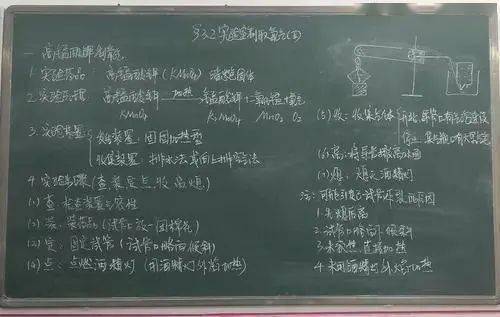 §3.2 实验室制取氧气(2)
一. 高锰酸钾制氧气
1. 实验药品: 高锰酸钾 (KMnO₄) 紫色固体
2. 实验原理: 高锰酸钾 加热 锰酸钾+二氧化锰+氧气
KMnO₄ K₂MnO₄ MnO₂ O₂
3. 实验装置 发生装置: 固固加热型
收集装置: 排水法或向上排空气法
4. 实验步骤 (查装定点收离熄)
(1) 查: 检查装置气密性
(2) 装: 装药品 (试管口放一团棉花)
(3) 定: 固定试管 (试管口略向下倾斜)
(4) 点: 点燃酒精灯 (用酒精灯外焰加热)
(5) 收: 收集气体
(6) 离: 将导管撤离水面
(7) 熄: 熄灭酒精灯
注: 可能引起试管炸裂的原因
1. 先熄后离
2. 试管口略向上倾斜
3. 未预热, 直接加热
4. 未用酒精灯外焰加热